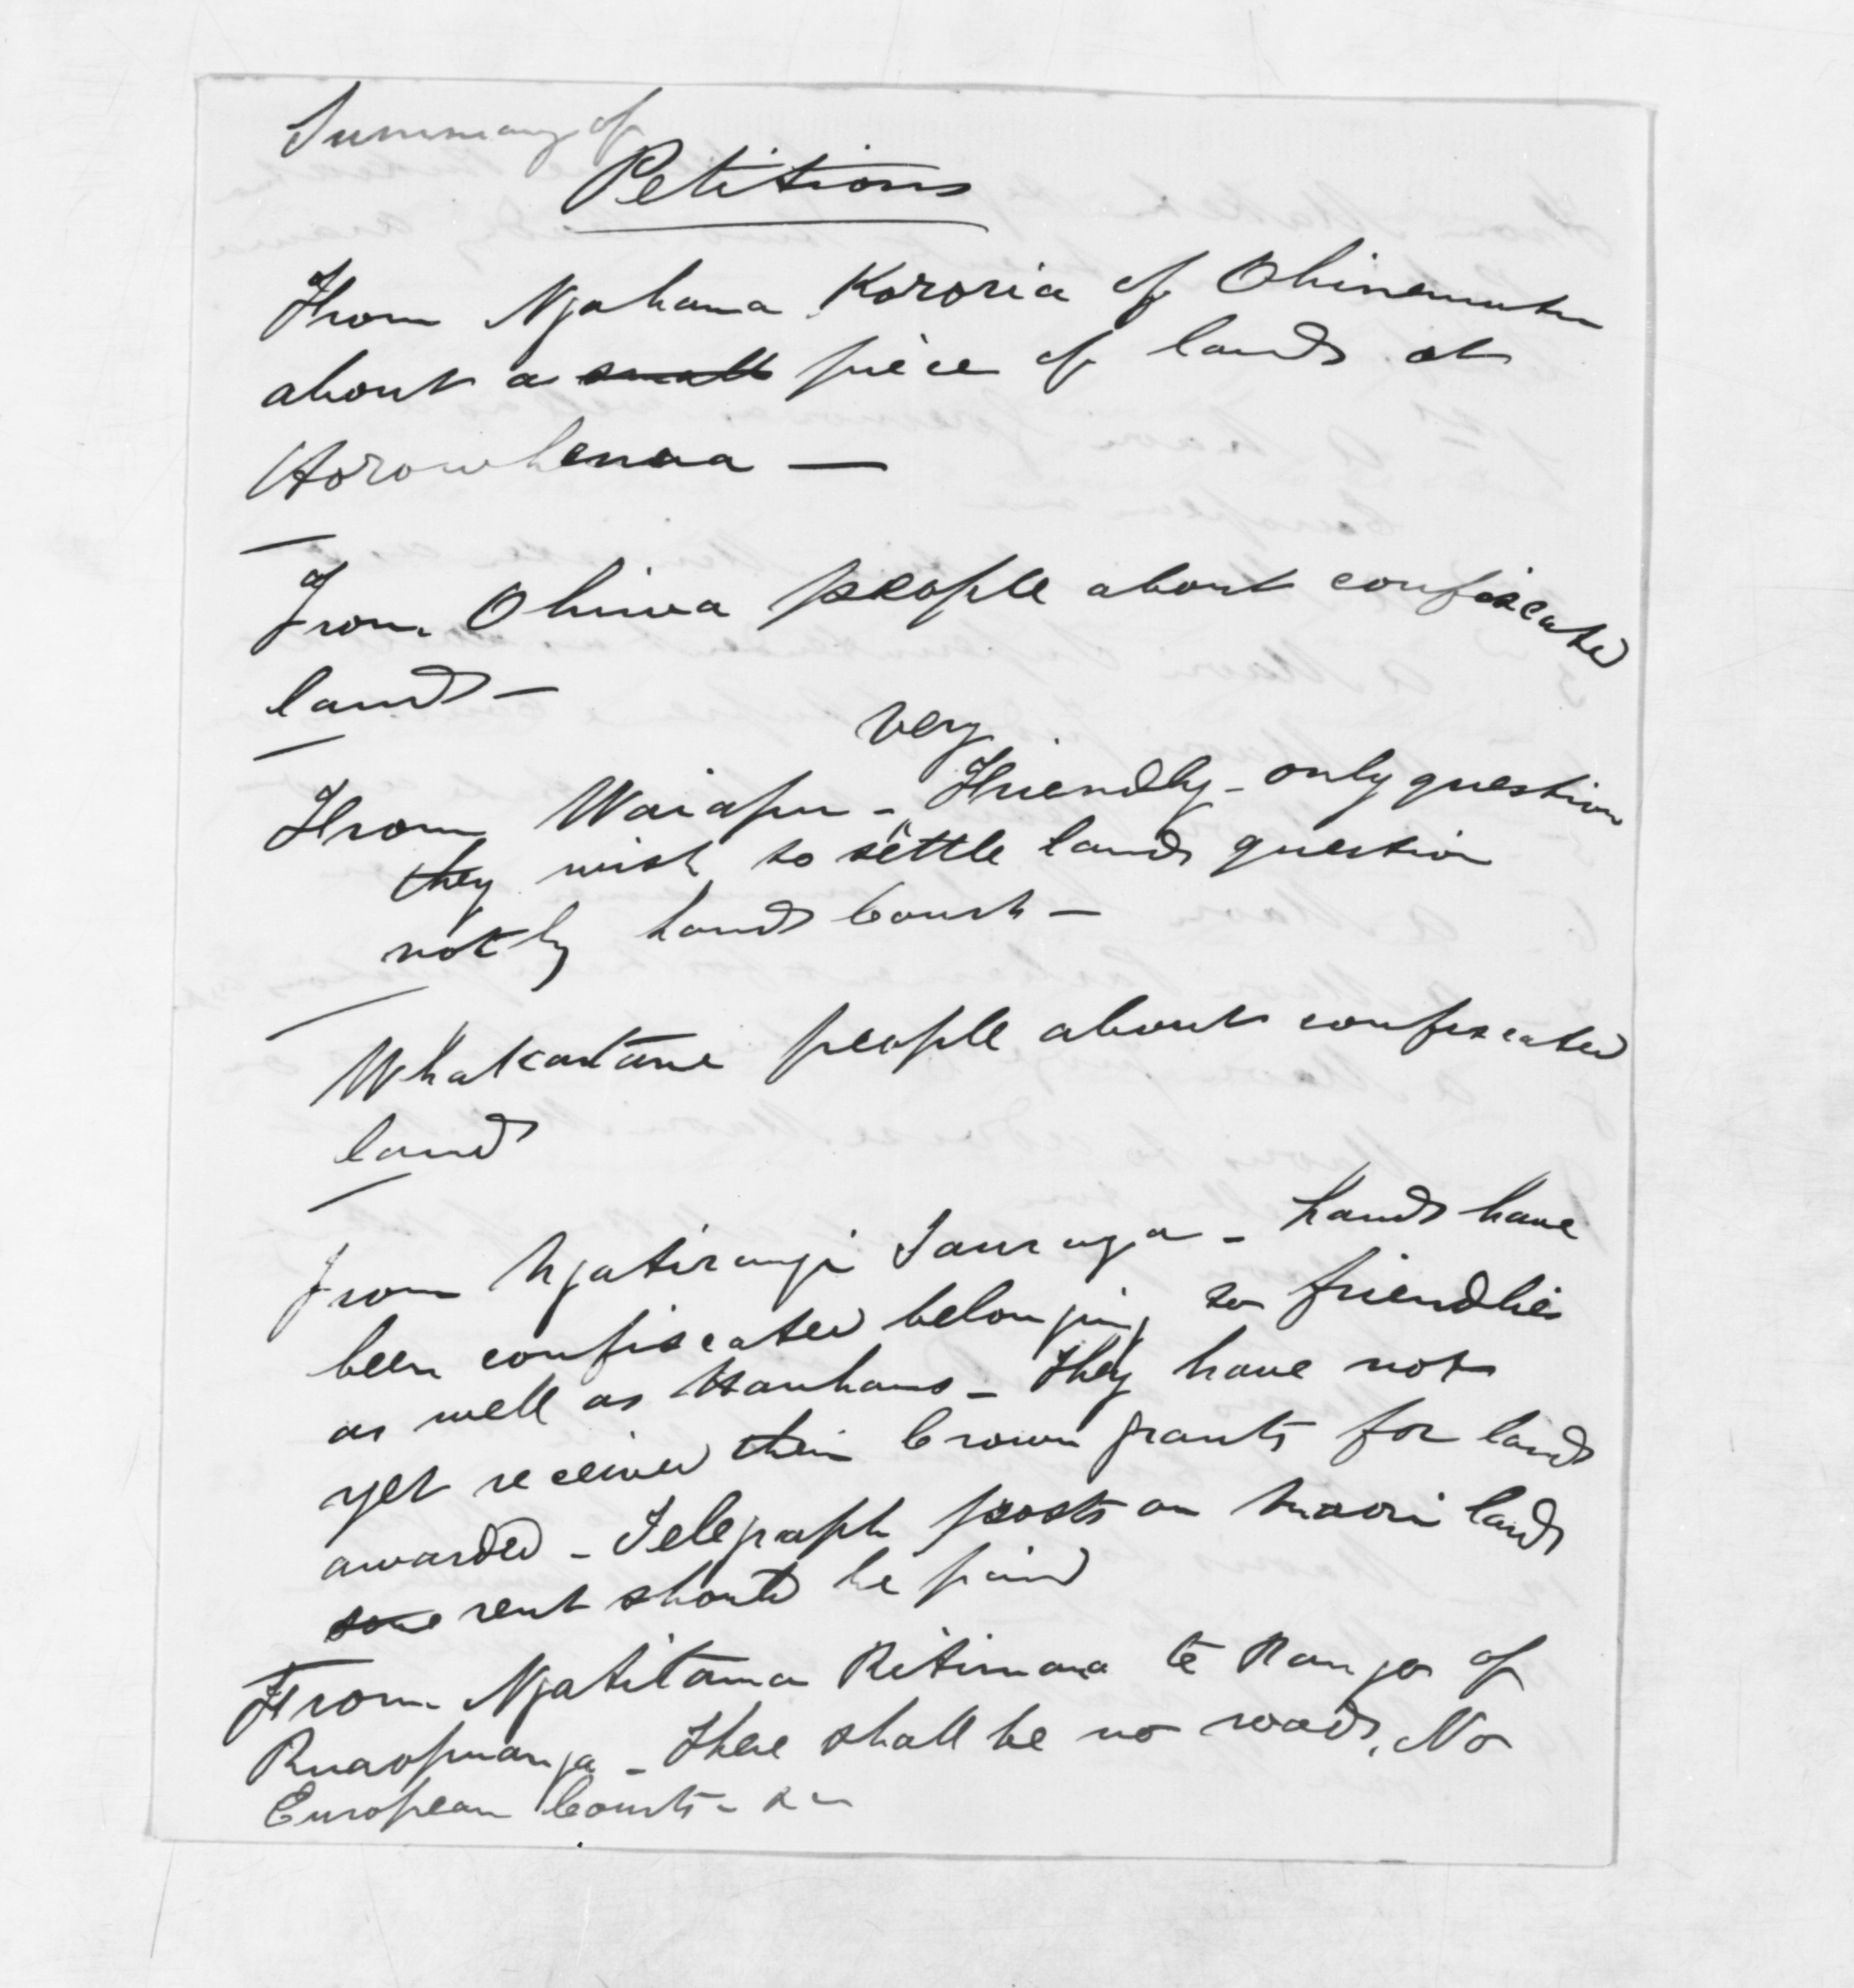 Summary of
Petitions
From Ngahana Kororia of Ohinemutu
about a small piece of land at
Horowhenua —
From Ohiwa people about confiscated
land —
very
From Waiapu - Friendly - only question
they wish to settle land question
not by Land Court —
Whakatane people about confiscated
land
From Ngatirangi Tauranga - Lands have
been confiscated belonging to friendlies
as well as Hauhaus - They have not
yet received their Crown grants for land
awarded - Telegraph posts on Maori land
some rent should be paid
From Ngatitama Ritimana te Rango of
Ruaopuanga - There shall be no roads, No
European Courts -